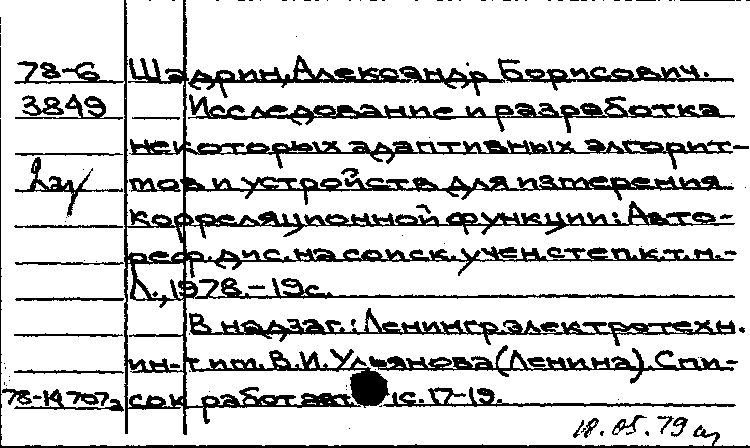 78-6 Шадрин, Александр Борисович.
3849 Исследование и разработка
некоторых адаптивных алгорит-
тов и устройств для изтерения
корреляционной функции: Авто-
реф. дис. на соиск. учен. степ. к. т. н. -
Л., 1978. - 19с.
В надзаг.: Ленингр. электротехн.
ин-т им. В.И. Ульянова (Ленина). Спи-
78-14707а сок работ авт. с. 17-19.
18.05.79